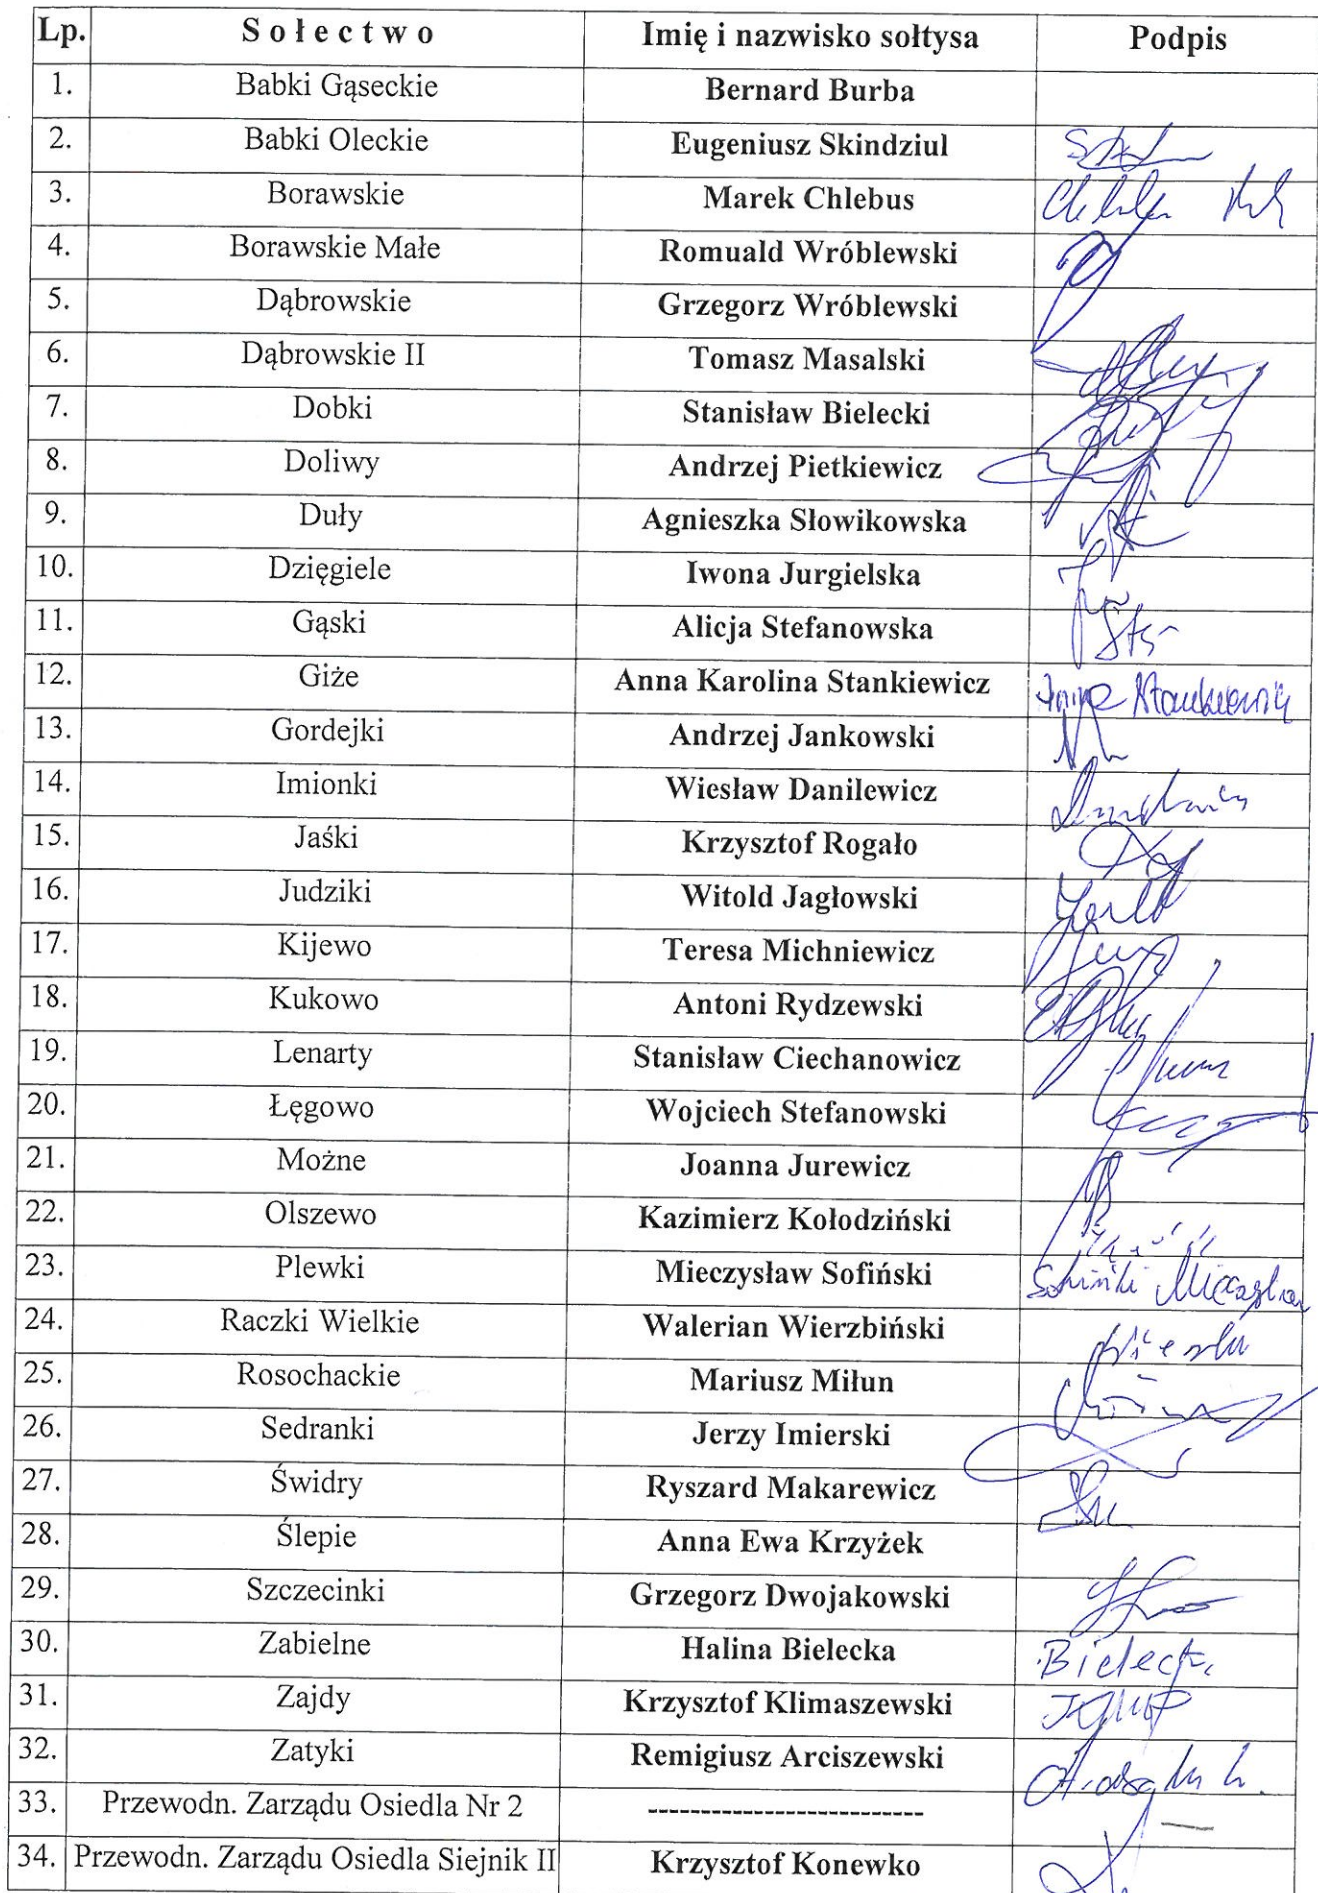 Lp. Sołectwo Imię i nazwisko sołtysa Podpis
1. Babki Gąseckie Bernard Burba
2. Babki Oleckie Eugeniusz Skindziul
3. Borawskie Marek Chlebus
4. Borawskie Małe Romuald Wróblewski
5. Dąbrowskie Grzegorz Wróblewski
6. Dąbrowskie II Tomasz Masalski
7. Dobki Stanisław Bielecki
8. Doliwy Andrzej Pietkiewicz
9. Duły Agnieszka Słowikowska
10. Dzięgiele Iwona Jurgielska
11. Gąski Alicja Stefanowska
12. Giże Anna Karolina Stankiewicz
13. Gordejki Andrzej Jankowski
14. Imionki Wiesław Danilewicz
15. Jaśki Krzysztof Rogało
16. Judziki Witold Jagłowski
17. Kijewo Teresa Michniewicz
18. Kukowo Antoni Rydzewski
19. Lenarty Stanisław Ciechanowicz
20. Łęgowo Wojciech Stefanowski
21. Możne Joanna Jurewicz
22. Olszewo Kazimierz Kołodziński
23. Plewki Mieczysław Sofiński
24. Raczki Wielkie Walerian Wierzbiński
25. Rosochackie Mariusz Miłun
26. Sedranki Jerzy Imierski
27. Świdry Ryszard Makarewicz
28. Ślepie Anna Ewa Krzyżek
29. Szczecinki Grzegorz Dwojakowski
30. Zabielne Halina Bielecka
31. Zajdy Krzysztof Klimaszewski
32. Zatyki Remigiusz Arciszewski
33. Przewodn. Zarządu Osiedla Nr 2 --------------------------
34. Przewodn. Zarządu Osiedla Siejnik II Krzysztof Konewko